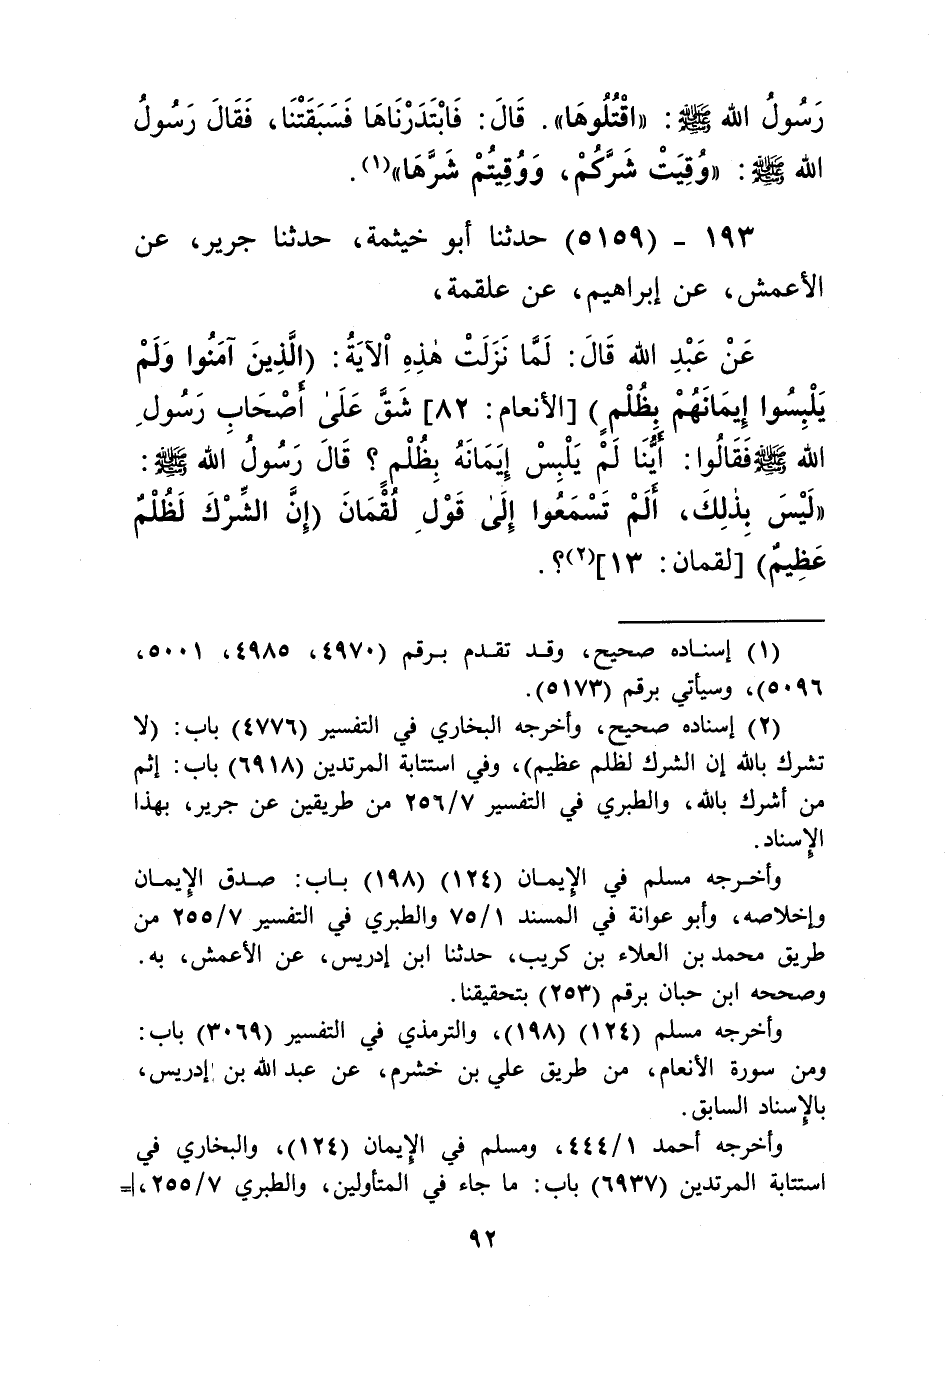 رَسُولُ الله ﷺ: «اقْتُلُوهَا». قَالَ: فَابْتَدَرْنَاهَا فَسَبَقَتْنَا، فَقَالَ رَسُولُ
الله ﷺ: «وُقِيَتْ شَرَّكُمْ، وَوُقِيتُمْ شَرَّهَا»(١).
١٩٣ - (٥١٥٩) حدثنا أبو خيثمة، حدثنا جرير، عن
الأعمش، عن إبراهيم، عن علقمة،
عَنْ عَبْدِ الله قَالَ: لَمَّا نَزَلَتْ هٰذِهِ اْلآيَةُ: (الَّذِينَ آمَنُوا وَلَمْ
يَلْبِسُوا إِيمَانَهُمْ بِظُلْمٍ) [الأنعام: ٨٢] شَقَّ عَلَىٰ أَصْحَابِ رَسُولِ
الله ﷺ فَقَالُوا: أَيُّنَا لَمْ يَلْبِسْ إِيَمَانَهُ بِظُلْمٍ؟ قَالَ رَسُولُ الله ﷺ:
«لَيْسَ بِذٰلِكَ، أَلَمْ تَسْمَعُوا إِلَىٰ قَوْلِ لُقْمَانَ (إِنَّ الشِّرْكَ لَظُلْمٌ
عَظِيمٌ) [لقمان: ١٣](٢)؟.
(١) إسناده صحيح، وقد تقدم برقم (٤٩٧٠، ٤٩٨٥، ٥٠٠١،
٥٠٩٦)، وسيأتي برقم (٥١٧٣).
(٢) إسناده صحيح، وأخرجه البخاري في التفسير (٤٧٧٦) باب: (لا
تشرك بالله إن الشرك لظلم عظيم)، وفي استتابة المرتدين (٦٩١٨) باب: إثم
من أشرك بالله، والطبري في التفسير ٢٥٦/٧ من طريقين عن جرير، بهذا
الإسناد.
وأخرجه مسلم في الإيمان (١٢٤) (١٩٨) باب: صدق الإيمان
وإخلاصه، وأبو عوانة في المسند ٧٥/١ والطبري في التفسير ٢٥٥/٧ من
طريق محمد بن العلاء بن كريب، حدثنا ابن إدريس، عن الأعمش، به.
وصححه ابن حبان برقم (٢٥٣) بتحقيقنا.
وأخرجه مسلم (١٢٤) (١٩٨)، والترمذي في التفسير (٣٠٦٩) باب:
ومن سورة الأنعام، من طريق علي بن خشرم، عن عبد الله بن إدريس،
بالإسناد السابق.
وأخرجه أحمد ٤٤٤/١، ومسلم في الإيمان (١٢٤)، والبخاري في
استتابة المرتدين (٦٩٣٧) باب: ما جاء في المتأولين، والطبري ٢٥٥/٧، =
٩٢